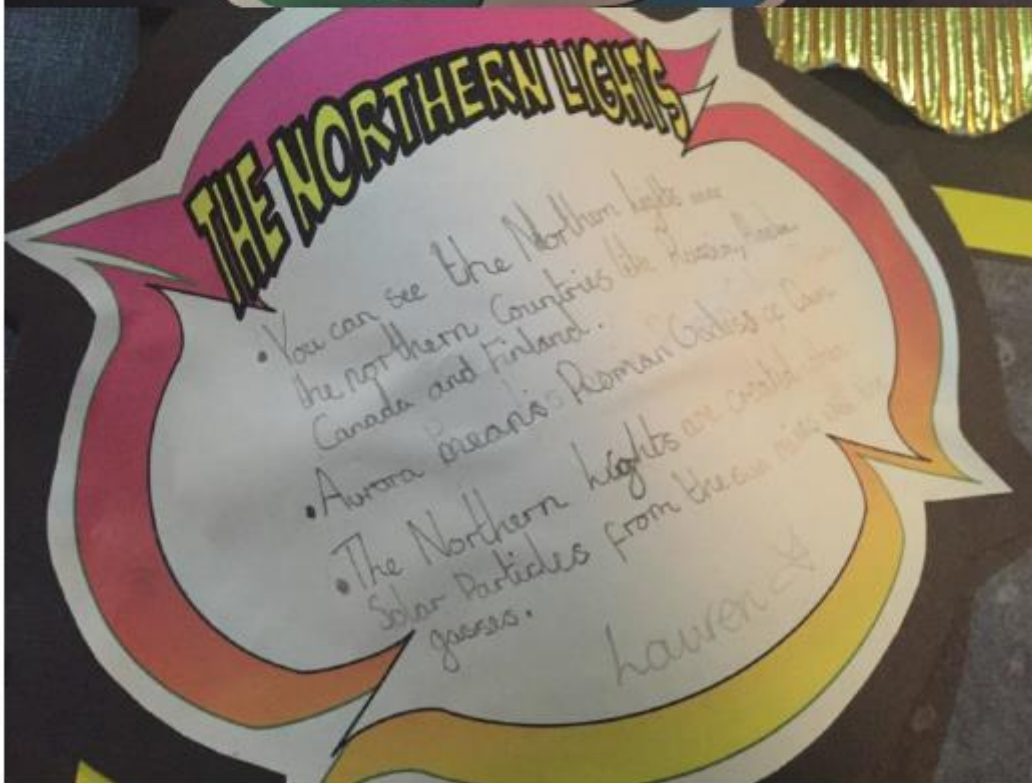 THE NORTHERN LIGHTS
• You can see the Northern Lights
the northern Countries like Russia,
Canada and Finland.
• Aurora means Roman Godiss of Dawn
• The Northern Lights are creatid when
Solar Particles from the sun with the
gasses.
Lauren